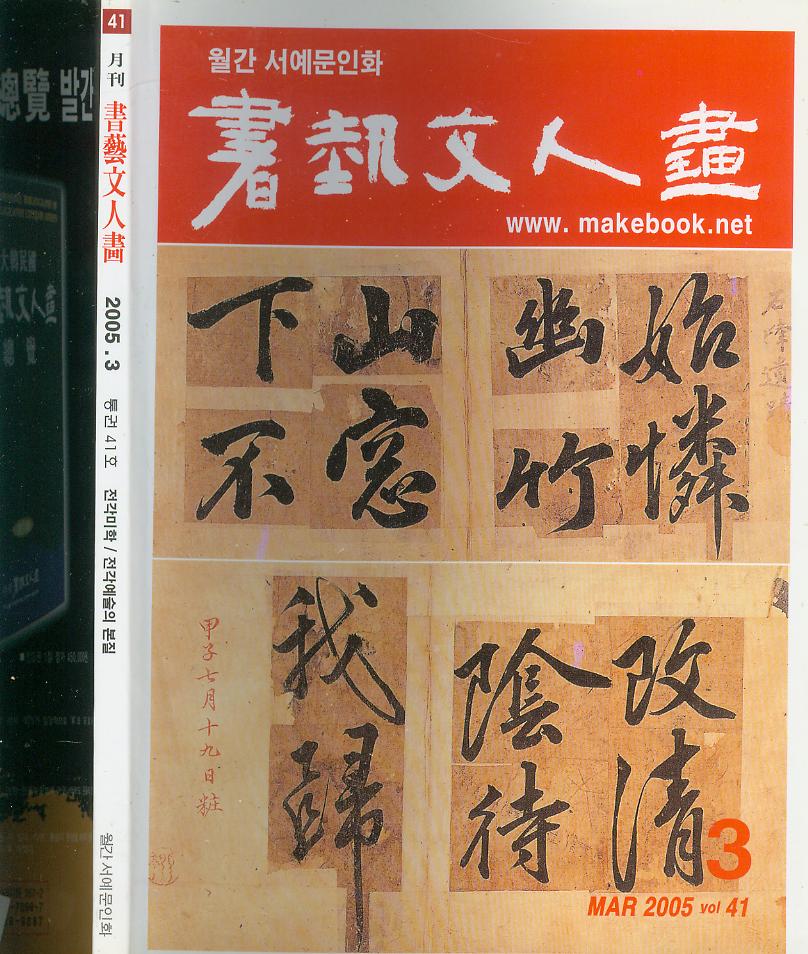 總覽 발간
41
月刊
書藝文人畵
2005.3
통권 41호
전각미학 / 전각예술의 본질
월간 서예문인화
월간 서예문인화
書埶文人畵
www. makebook.net
始憐
幽竹
山窓
下不
改清
陰待
我歸
甲子七月十九日粧
3
MAR 2005 vol 41